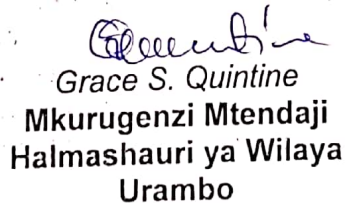 Grace S. Quintine
Mkurugenzi Mtendaji
Halmashauri ya Wilaya
Urambo